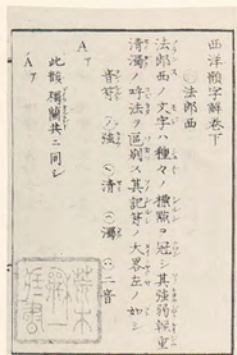 西洋字解卷下
○法郎西
法郎西ノ文字ハ種々ノ標ヲ冠シ其強弱輕重
清濁ノ呼法ヲ區別ス其記ノ大畧左ノ如シ
音符 強 清 濁 二音
A ア
此韻獨蘭共ニ同シ
A ア